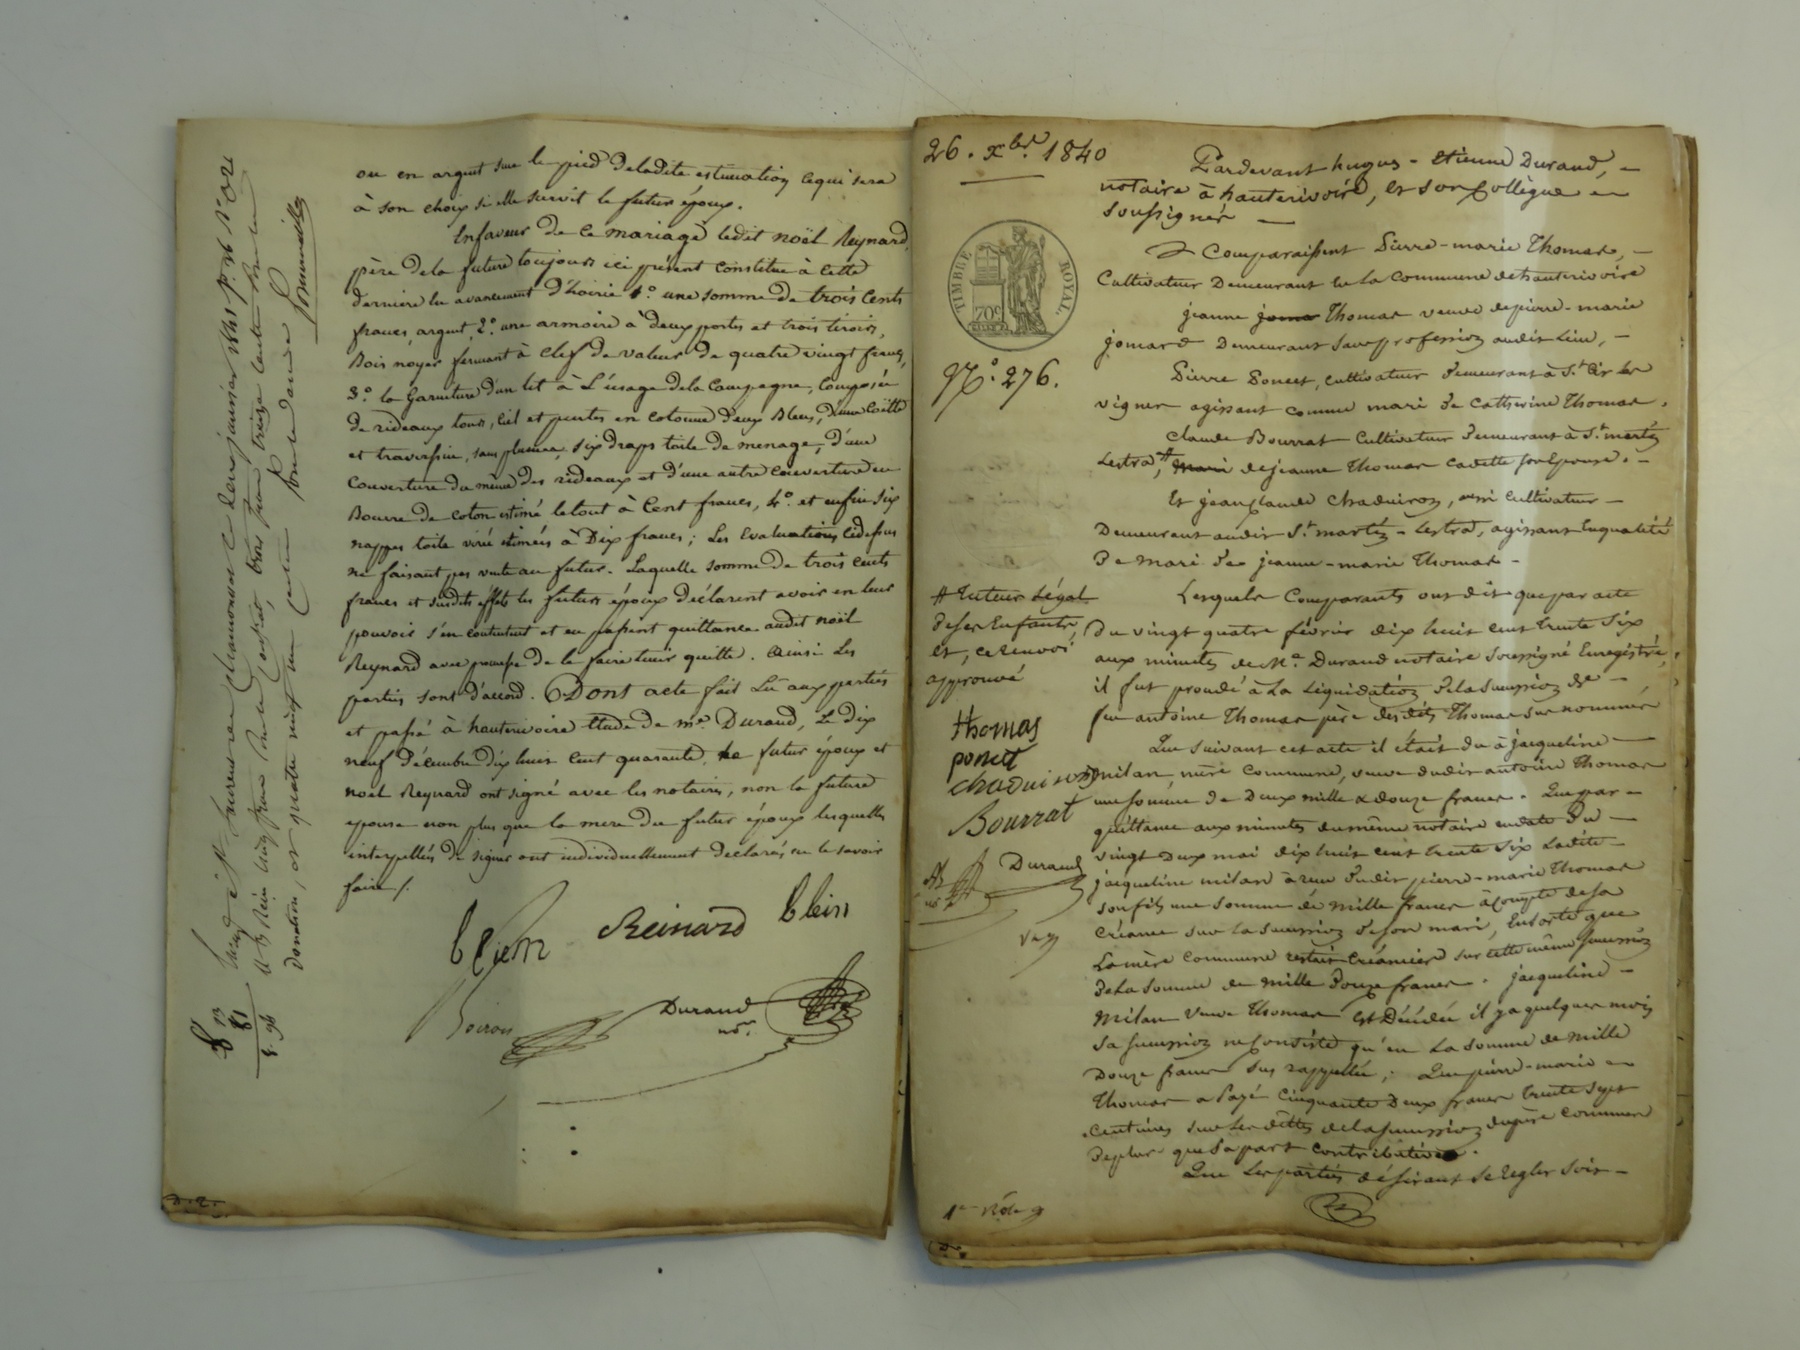 ou en argent sur le pied deladite estimation cequi sera
à son choix si elle survit le futur époux.
Enfaveur de ce mariage ledit noël Reynard,
père dela future toujours ici présent constitue à cette
dernière en avancement d'hoirie 1.º une somme de trois Cents
francs, argent, 2.º une armoire à deux portes et trois tiroirs,
Bois noyer fermant à clef de valeur de quatre vingt francs,
3.º la Garniture d'un lit à L'usage dela Campagne, Composée
de rideaux tours, Ciel et pentes en cotonne deux Bleus, d'une Coëtte
et traversin, sans plumes, six draps toile de menage, d'une
Couverture du même des rideaux et d'une autre couverture en
Bourre de coton estimé letout à Cent francs, 4.º et enfin six
nappes toile estimées à Dix francs; Les Evaluations Cidessus
ne faisant pas vente au futur. Laquelle somme de trois cents
francs et susdits effets les futurs époux déclarent avoir en leur
pouvoir s'en contentent et en passent quittance audit noël
Reynard avec promesse de le faire tenir quitte. Ainsi Les
parties sont d'accord. Dont acte fait Lû aux parties
et passé à hauterivoire Etude de me. Durand, Le dix
neuf décembre dix huit Cent quarante, le futur époux et
noël Reynard ont signé avec les notaires, non la future
epouse non plus que la mere du futur époux lesquelles
interpellées de signer ont individuellement declaré ne le savoir
faire /.
Reinard blein
Durand
nre.
13
81
8.94
D.2.
26. xbre. 1840
TIMBRE ROYAL.
70c
Nº. 276.
Pardevant hugues-etienne Durand,
notaire à hauterivoire, et son Collègue
soussignés
Comparaissent Pierre-marie Thomas,
Cultivateur Demeurant en la Commune de hauterivoire
jeanne Thomas veuve depierre-marie
jomard Demeurant sans profession audit Lieu,
Pierre Poncet, cultivateur demeurant à St. Cir les
vignes agissant comme mari de Catherine Thomas.
Claude Bourrat Cultivateur demeurant à St. martin
Lestra, # mari dejeanne Thomas cadette son Epouse.
Et jeanClaude Chaduiron, aussi Cultivateur
Demeurant audit St. martin-Lestra, agissant Enqualité
De mari de jeanne-marie Thomas
# Tuteur Légal
deses Enfants,
et, ce renvoi
approuvé
Thomas
poncet
chaduiron
Bourrat
Durand
Lesquels Comparants ont dit que par acte
du vingt quatre février dix huit cent trente six
aux minutes de Me. Durand notaire soussigné Enregistré,
il fut procédé à La Liquidation dela succession de
feu antoine Thomas père desdits Thomas sus nommés
Que suivant cet acte il était du à jacqueline
milan mère commune, veuve dudit antoine Thomas
une somme de Deux mille & douze francs. Que par
quittance aux minutes dumême notaire endate du
vingt Deux mai dix huit cent trente six Ladite
jacqueline milan à reçu dudit pierre-marie Thomas
son fils une somme de mille francs àCompte desa
Créance sur la succession deson mari, Ensorte que
La mère commune restait Créancière sur cette même succession
dela somme de mille Douze francs. jacqueline
Milan Veuve Thomas Est Décédée il y a quelques mois
sa succession ne Consiste qu'en La somme de mille
Douze francs sus rappellée; Que pierre-marie
Thomas a Payé Cinquante Deux francs trente sept
centimes sur Les dettes de la succession dupère Commun
deplus que sa part contributive.
Que Les parties désirant se regler soit
1er Rôle